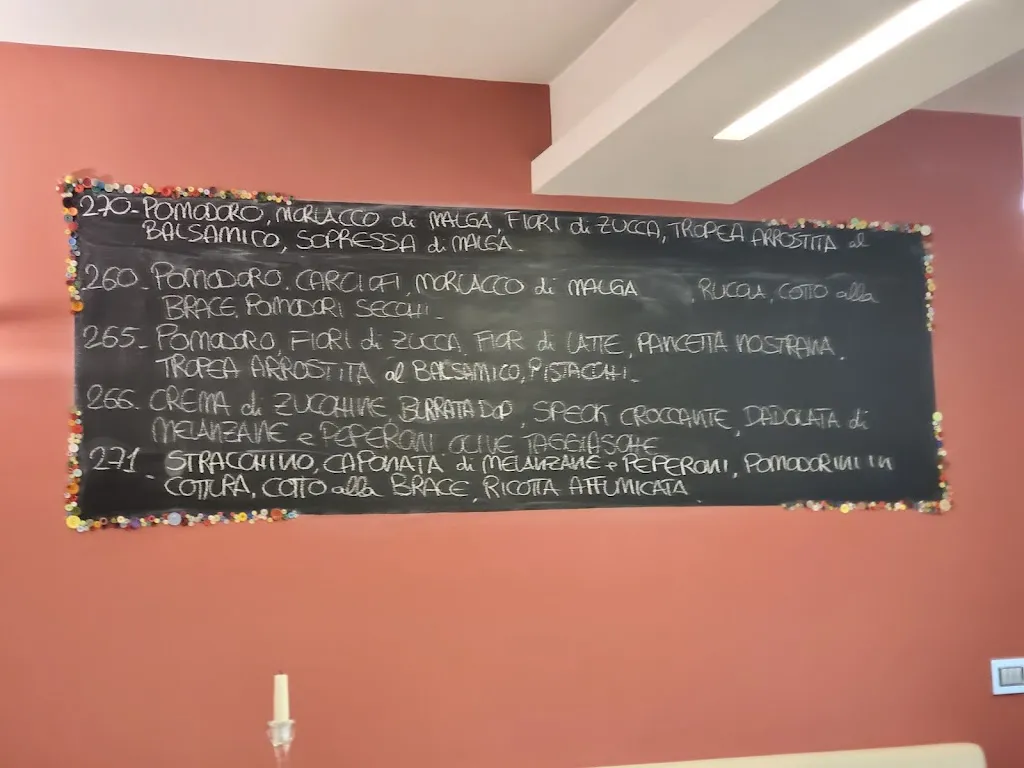 270- POMODORO, MORLACCO di MALGA, FIORI di ZUCCA, TROPEA ARROSTITA al
BALSAMICO, SOPRESSA di MALGA_
260_ POMODORO, CARCIOFI, MORLACCO di MALGA , RUCOLA, COTTO alla
BRACE, POMODORI SECCHI_
265_ POMODORO, FIORI di ZUCCA, FIOR di LATTE, PANCETTA NOSTRANA,
TROPEA ARROSTITA al BALSAMICO, PISTACCHI_
266. CREMA di ZUCCHINE, BURRATA DOP, SPECK CROCCANTE, DADOLATA di
MELANZANE e PEPERONI OLIVE TAGGIASCHE
271 STRACCHINO, CAPONATA di MELANZANE e PEPERONI, POMODORINI IN
COTTURA, COTTO alla BRACE, RICOTTA AFFUMICATA.